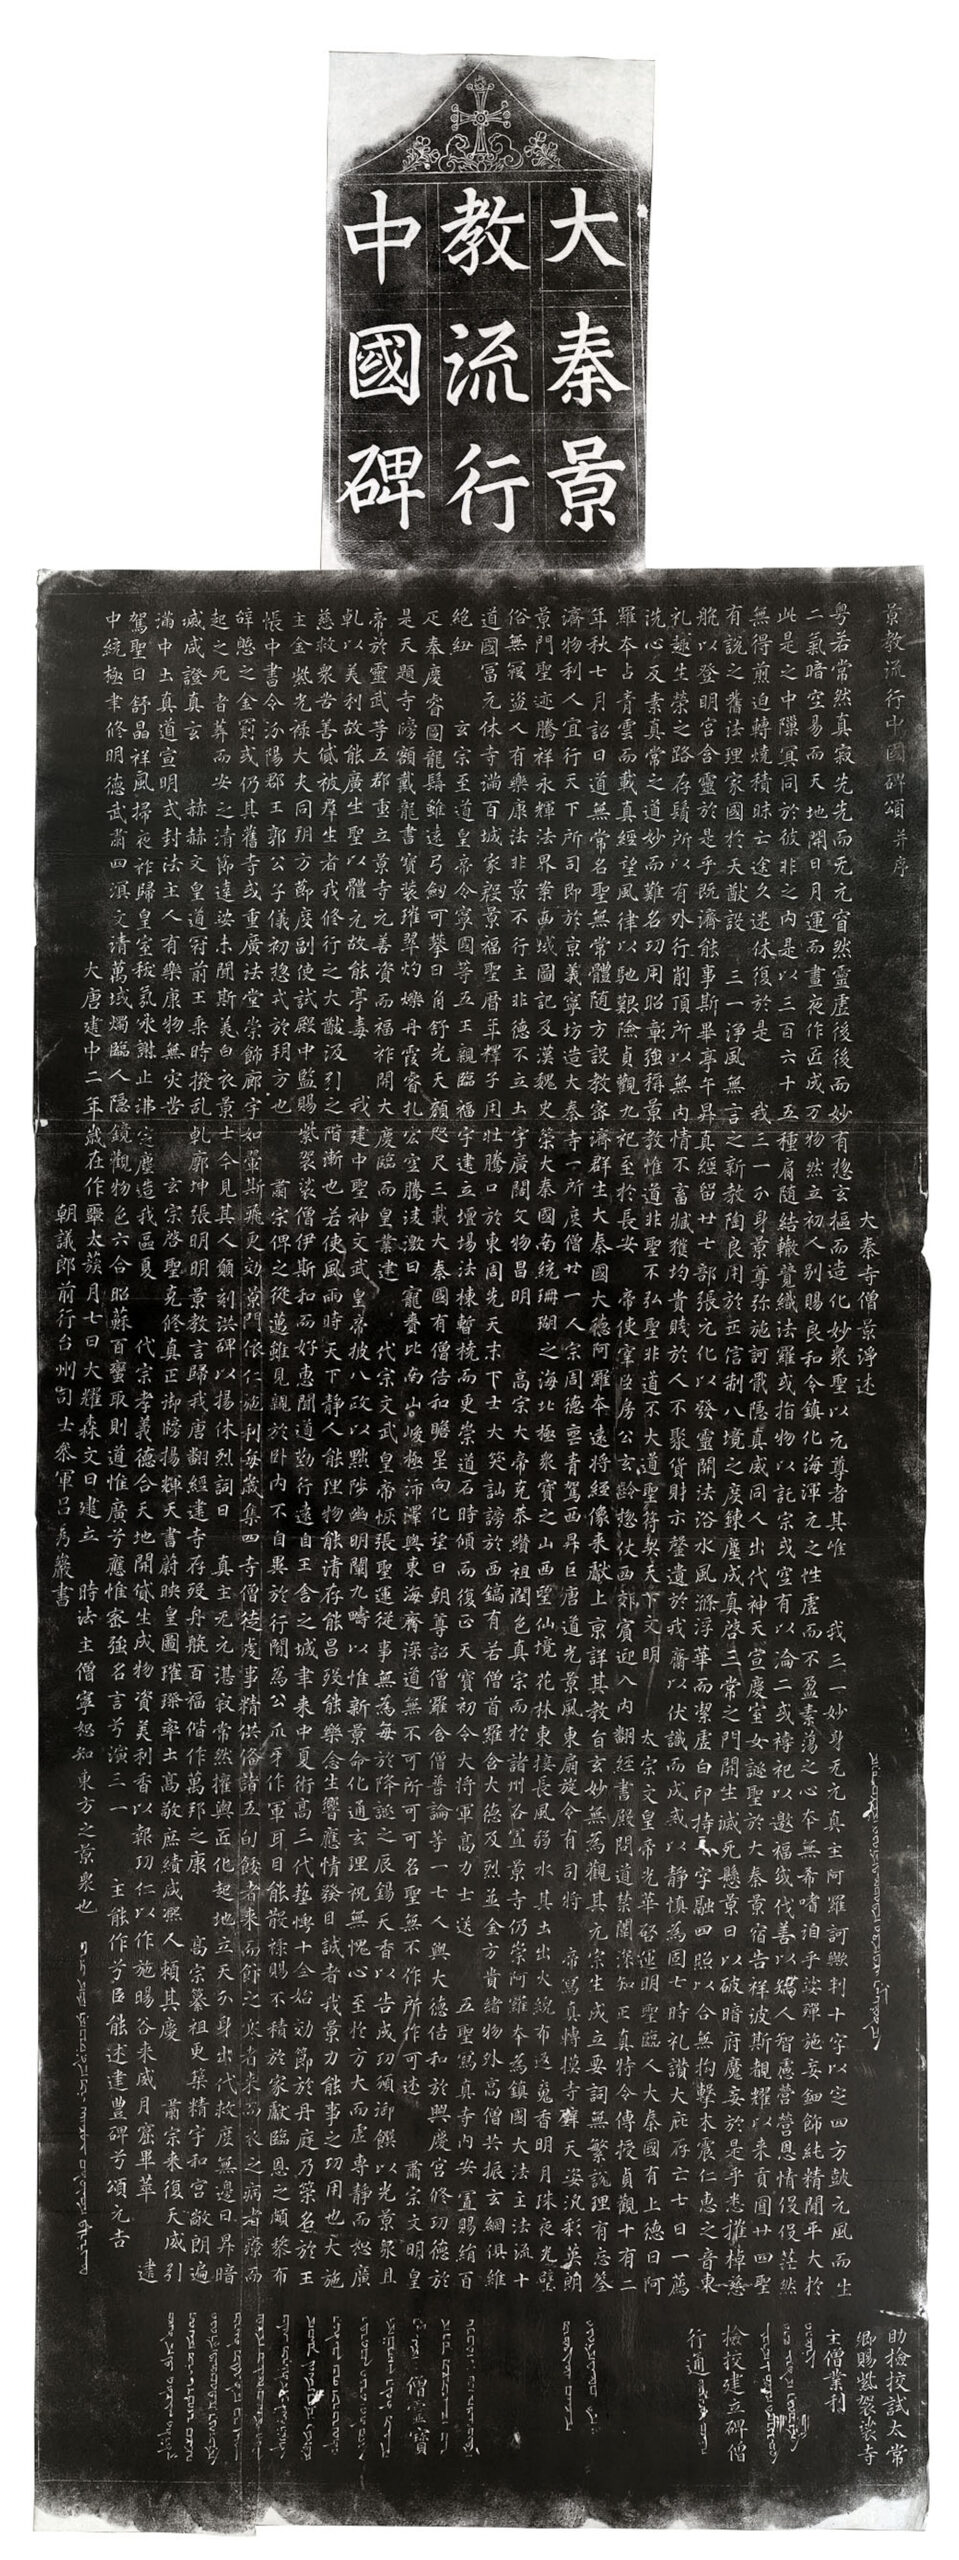 大秦景
教流行
中國碑
景教流行中國碑頌 并序
大秦寺僧景淨述
粵若常然真寂先先而无元窅然靈虛後後而妙有惣玄樞而造化妙衆聖以元尊者其唯 我三一妙身无元真主阿羅訶歟判十字以定四方鼓元風而生
二氣暗空易而天地開日月運而晝夜作匠成万物然立初人別賜良和令鎮化海渾元之性虛而不盈素蕩之心夲無希嗜洎乎娑殫施妄鈿飾純精閒平大於
此是之中隟冥同於彼非之內是以三百六十五種肩随結轍競織法羅或指物以託宗或空有以淪二或禱祀以邀福或伐善以矯人智慮營營恩情役役茫然
無得煎迫轉燒積昧亡途久迷休復於是 我三一分身景尊弥施訶戢隱真威同人出代神天宣慶室女誕聖於大秦景宿告祥波斯覩耀以来貢圓廿四聖
有說之舊法理家國於大猷設 三一淨風無言之新教陶良用於正信制八境之度鍊塵成真啓三常之門開生滅死懸景日以破暗府魔妄於是乎悉摧棹慈
航以登明宮含靈於是乎既濟能事斯畢亭午昇真經留廿七部張元化以發靈關法浴水風滌浮華而潔虛白印持十字融四照以合無拘擊木震仁惠之音東
礼趣生榮之路存鬚所以有外行削頂所以無內情不畜臧獲均貴賤於人不聚貨財示罄遺於我齋以伏識而成戒以靜慎為固七時礼讚大庇存亡七日一薦
洗心反素真常之道妙而難名功用昭彰強稱景教惟道非聖不弘聖非道不大道聖符契天下文明 太宗文皇帝光華啓運明聖臨人大秦國有上德曰阿
羅夲占青雲而載真經望風律以馳艱險貞觀九祀至於長安 帝使宰臣房公玄齡惣仗西郊賓迎入內翻經書殿問道禁闈深知正真特令傳授貞觀十有二
年秋七月詔曰道無常名聖無常體随方設教密濟群生大秦國大德阿羅夲遠將經像来獻上京詳其教旨玄妙無為觀其元宗生成立要詞無繁說理有忘筌
濟物利人宜行天下所司即於京義寧坊造大秦寺一所度僧廿一人宗周德喪青駕西昇巨唐道光景風東扇旋令有司將 帝寫真轉摸寺壁天姿汎彩英朗
景門聖迹騰祥永輝法界案西域圖記及漢魏史策大秦國南統珊瑚之海北極衆寶之山西望仙境花林東接長風弱水其土出火綄布返魂香明月珠夜光璧
俗無寇盜人有樂康法非景不行主非德不立土宇廣闊文物昌明 高宗大帝克恭纘祖潤色真宗而於諸州各置景寺仍崇阿羅夲為鎮國大法主法流十
道國富元休寺滿百城家殷景福聖曆年釋子用壯騰口於東周先天末下士大笑訕謗於西鎬有若僧首羅含大德及烈並金方貴緒物外高僧共振玄網俱維
絕紐 玄宗至道皇帝令寧國等五王親臨福宇建立壇場法棟暫橈而更崇道石時傾而復正天寶初令大將軍高力士送 五聖寫真寺內安置賜絹百
疋奉慶睿圖龍髯雖遠弓劒可攀日角舒光天顏咫尺三載大秦國有僧佶和瞻星向化望日朝尊詔僧羅含僧普論等一七人與大德佶和於興慶宮修功德於
是天題寺牓額戴龍書寶裝璀翠灼爍丹霞睿扎宏空騰淩激日寵賚比南山峻極沛澤與東海齊深道無不可所可可名聖無不作所作可述 肅宗文明皇
帝於靈武等五郡重立景寺元善資而福祚開大慶臨而皇業建 代宗文武皇帝恢張聖運従事無為每於降誕之辰錫天香以告成功頒御饌以光景衆且
乹以美利故能廣生聖以體元故能亭毒 我建中聖神文武皇帝披八政以黜陟幽明闡九疇以惟新景命化通玄理祝無愧心至於方大而虛專靜而恕廣
慈救衆苦善貸被群生者我修行之大猷汲引之階漸也若使風雨時天下靜人能理物能清存能昌歿能樂念生響應情發目誠者我景力能事之功用也大施
主金紫光祿大夫同朔方節度副使試殿中監賜紫袈裟僧伊斯和而好惠聞道勤行遠自王舍之城聿来中夏術高三代藝博十全始効節於丹庭乃策名於王
帳中書令汾陽郡王郭公子儀初惣戎於朔方也 肅宗俾之従邁雖見親於卧內不自異於行間為公爪牙作軍耳目能散祿賜不積於家獻臨恩之頗黎布
辭憩之金罽或仍其舊寺或重廣法堂崇飾廊宇如翬斯飛更効景門依仁施利每歲集四寺僧徒虔事精供俻諸五旬餧者来而飰之寒者来而衣之病者療而
起之死者葬而安之清節達娑未聞斯美白衣景士今見其人願刻洪碑以揚休烈詞曰 真主无元湛寂常然權輿匠化起地立天分身出代救度無邊日昇暗
滅咸證真玄 赫赫文皇道冠前王乘時撥乱乹廓坤張明明景教言歸我唐翻經建寺存歿舟航百福偕作萬邦之康 高宗纂祖更築精宇和宮敞朗遍
滿中土真道宣明式封法主人有樂康物無灾苦 玄宗啓聖克修真正御牓揚輝天書蔚映皇圖璀璨率土高敬庶績咸凞人賴其慶 肅宗来復天威引
駕聖日舒晶祥風掃夜祚歸皇室祅氛永謝止沸定塵造我區夏 代宗孝義德合天地開貸生成物資美利香以報功仁以作施暘谷来威月窟畢萃 建
中統極聿修明德武肅四溟文清萬域燭臨人隱鏡觀物色六合昭蘇百蠻取則道惟廣兮應惟密強名言兮演三一 主能作兮臣能述建豐碑兮頌元吉
大唐建中二年歲在作噩太蔟月七日大耀森文日建立 時法主僧寧恕知東方之景衆也
朝議郎前行台州司士叅軍呂秀巖書
助撿挍試太常
卿賜紫袈裟寺
主僧業利
撿挍建立碑僧
行通
僧靈寶